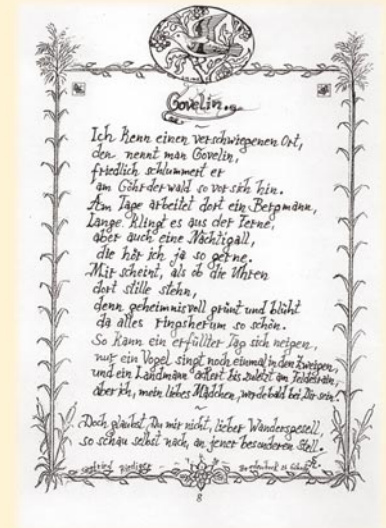 Govelin.
Ich kenn einen verschwiegenen Ort,
den nennt man Govelin,
friedlich schlummert er
am Göhrderwald so vor sich hin.
Am Tage arbeitet dort ein Bergmann,
Lange klingt es aus der Ferne,
aber auch eine Nachtigall,
die hör ich ja so gerne.
Mir scheint, als ob die Uhren
dort stille stehn,
denn geheimnisvoll grünt und blüht
da alles ringsherum so schön.
So kann ein erfüllter Tag sich neigen,
nur ein Vogel singt noch einmal in den Zweigen,
und ein Landmann ackert bis zuletzt am Feldesrain,
aber ich, mein liebes Mädchen, werde bald bei Dir sein!
Doch glaubst Du mir nicht, lieber Wandersgesell,
so schau selbst nach, an jener besonderen Stell.
Siegfried
8